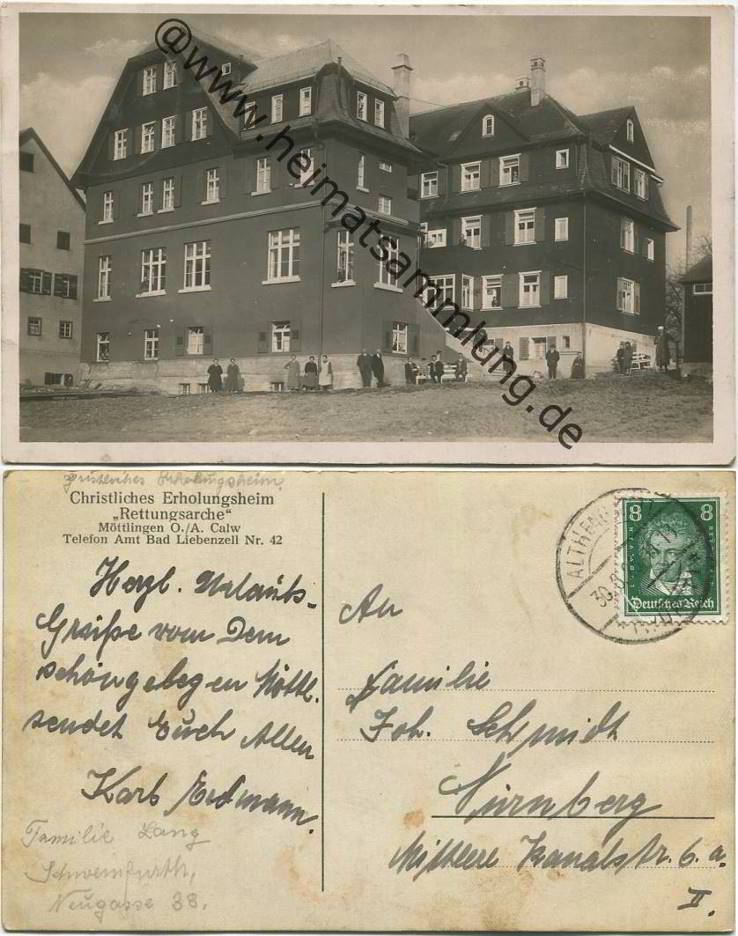 @www.heimatsammlung.de
Christliches Erholungsheim
Christliches Erholungsheim
„Rettungsarche“
Möttlingen O./A. Calw
Telefon Amt Bad Liebenzell Nr. 42
Herzl. Urlaubs-
Grüße vom Dem
schöngelegenen Möttl.
sendet Euch Allen
Karl Erdmann.
Familie Lang
Schweinfurth,
Neugasse 38.
8 8
Deutsches Reich
ALTHENG
30.8.
An
Familie
Joh. Schmidt
Nürnberg
Mittlere Kanalstr. 6. a.
II.